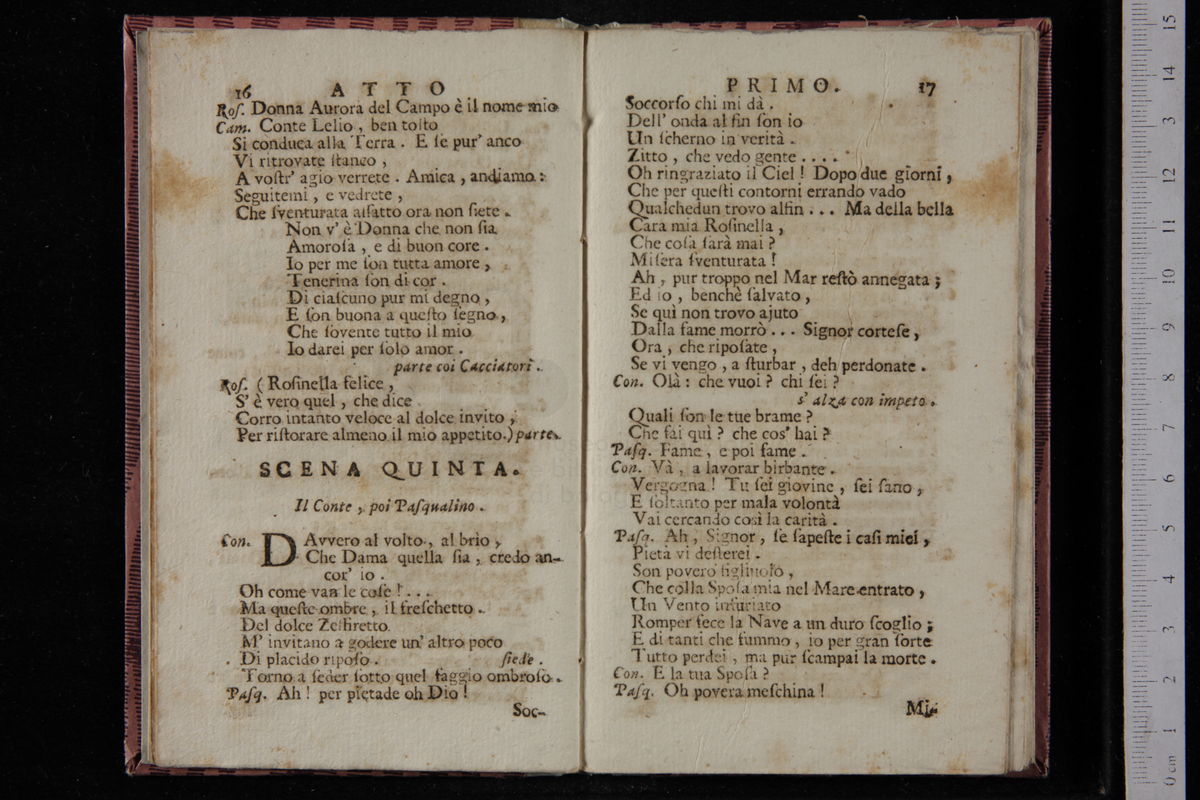 16 ATTO
Roſ. Donna Aurora del Campo è il nome mio
Cam. Conte Lelio , ben toſto
Si conduca alla Terra . E ſe pur' anco
Vi ritrovate ſtanco ,
A voſtr' agio verrete . Amica , andiamo :
Seguitemi , e vedrete ,
Che ſventurata affatto ora non ſiete .
Non v' è Donna che non ſia
Amoroſa , e di buon core .
Io per me ſon tutta amore ,
Tenerina ſon di cor .
Di ciaſcuno pur mi degno ,
E ſon buona a queſto ſegno ,
Che ſovente tutto il mio
Io darei per ſolo amor .
parte coi Cacciatori .
Roſ. ( Roſinella felice ,
S' è vero quel , che dice
Corro intanto veloce al dolce invito ,
Per riſtorare almeno il mio appetito.) parte.
SCENA QUINTA.
Il Conte , poi Paſqualino .
Con. DAvvero al volto , al brio ,
Che Dama quella ſia , credo an-
cor' io .
Oh come van le coſe ! . . .
Ma queſte ombre , il freſchetto .
Del dolce Zeffiretto
M' invitano a godere un' altro poco
Di placido ripoſo . ſiede .
Torno a ſeder ſotto quel faggio ombroſo .
Paſq. Ah ! per pietade oh Dio !
Soc-
PRIMO. 17
Soccorſo chi mi dà .
Dell' onda al fin ſon io
Un ſcherno in verità .
Zitto , che vedo gente . . . .
Oh ringraziato il Ciel ! Dopo due giorni ,
Che per queſti contorni errando vado
Qualchedun trovo alfin . . . Ma della bella
Cara mia Roſinella ,
Che coſa ſarà mai ?
Miſera ſventurata !
Ah , pur troppo nel Mar reſtò annegata ;
Ed io , benchè ſalvato ,
Se qui non trovo ajuto
Dalla fame morrò . . . Signor corteſe ,
Ora , che ripoſate ,
Se vi vengo , a ſturbar , deh perdonate .
Con. Olà : che vuoi ? chi ſei ?
s' alza con impeto .
Quali ſon le tue brame ?
Che fai quì ? che cos' hai ?
Paſq. Fame , e poi fame .
Con. Và , a lavorar birbante .
Vergogna ! Tu ſei giovine , ſei ſano ,
E ſoltanto per mala volontà
Vai cercando così la carità .
Paſq. Ah , Signor , ſe ſapeſte i caſi miei ,
Pietà vi deſterei .
Son povero figliuolo ,
Che colla Spoſa mia nel Mare entrato ,
Un Vento infuriato
Romper fece la Nave a un duro ſcoglio ;
E di tanti che fummo , io per gran ſorte
Tutto perdei , ma pur ſcampai la morte .
Con. E la tua Spoſa ?
Paſq. Oh povera meſchina !
Mi-
15
14
13
12
11
10
9
8
7
6
5
4
3
2
1
0 cm